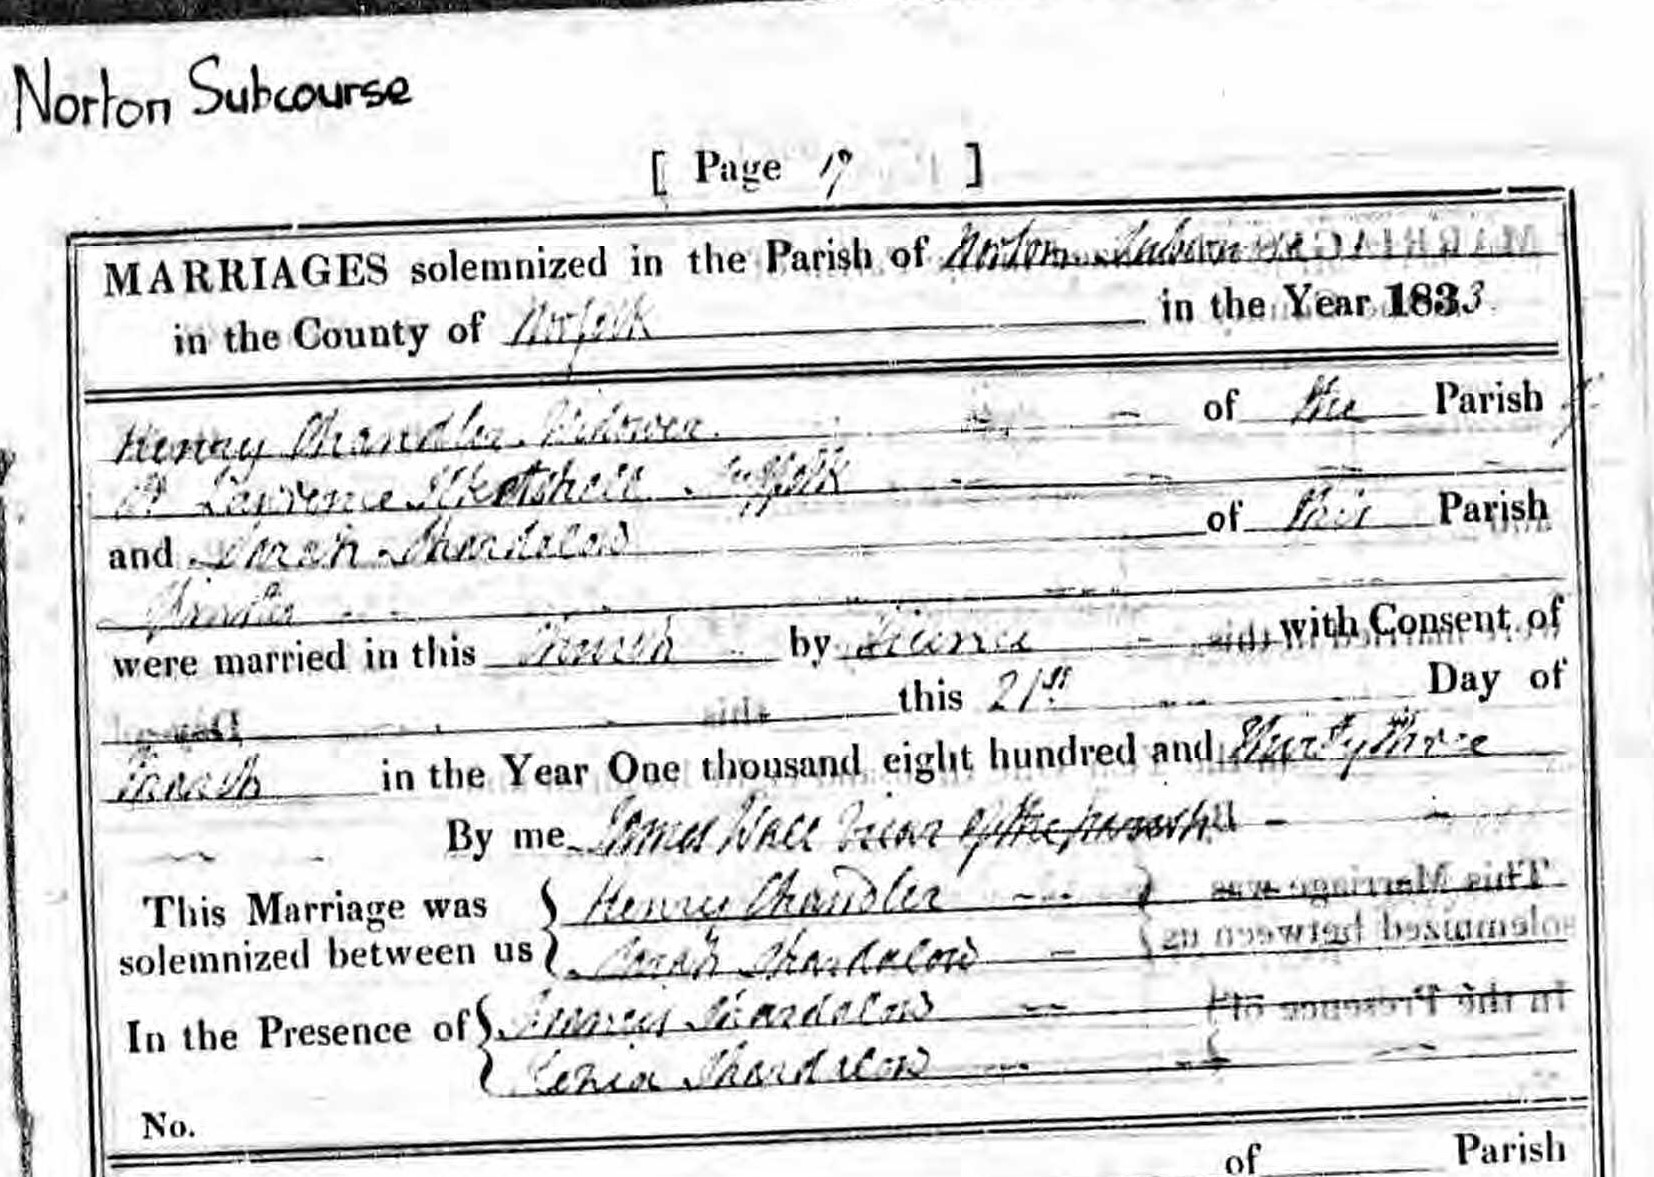 Norton Subcourse
[ Page 17 ]
MARRIAGES solemnized in the Parish of Norton Subcourse
in the County of Norfolk in the Year 1833
Henry Chandler Widower of the Parish of
St Lawrence Ilketshall Suffolk
and Sarah Shardalow of this Parish
Spinster
were married in this Church by Licence with Consent of
this 21st Day of
March in the Year One thousand eight hundred and thirty three
By me James Wall Vicar of the parish
This Marriage was } Henry Chandler
solemnized between us } Sarah Shardalow
In the Presence of } Francis Shardalow
Shardalow
No.
of Parish